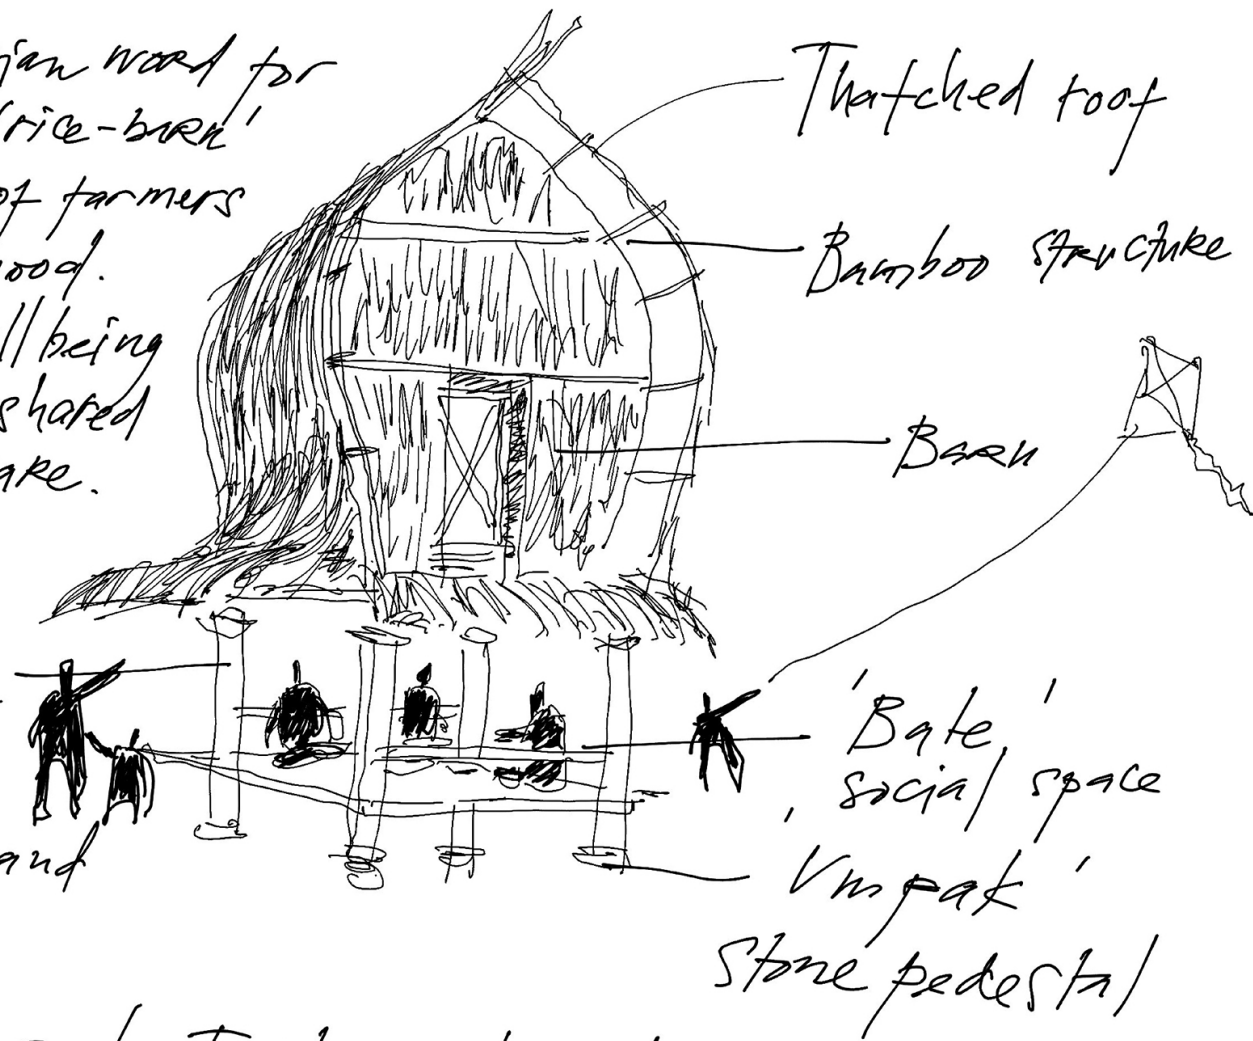 word for
'rice-barn'
of farmers
being
shared
and
Thatched roof
Bamboo structure
Barn
'Bale'
social space
'Umpak'
stone pedestal